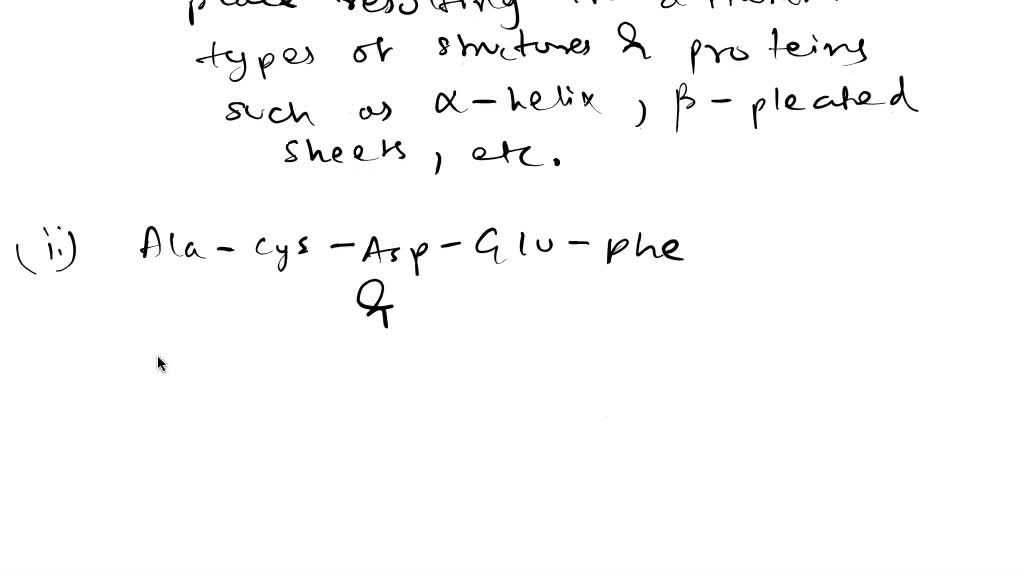 place resulting in
types of structures & proteins
such as α-helix, β-pleated
sheets, etc.
(ii) Ala-Cys-Asp-Glu-phe
&